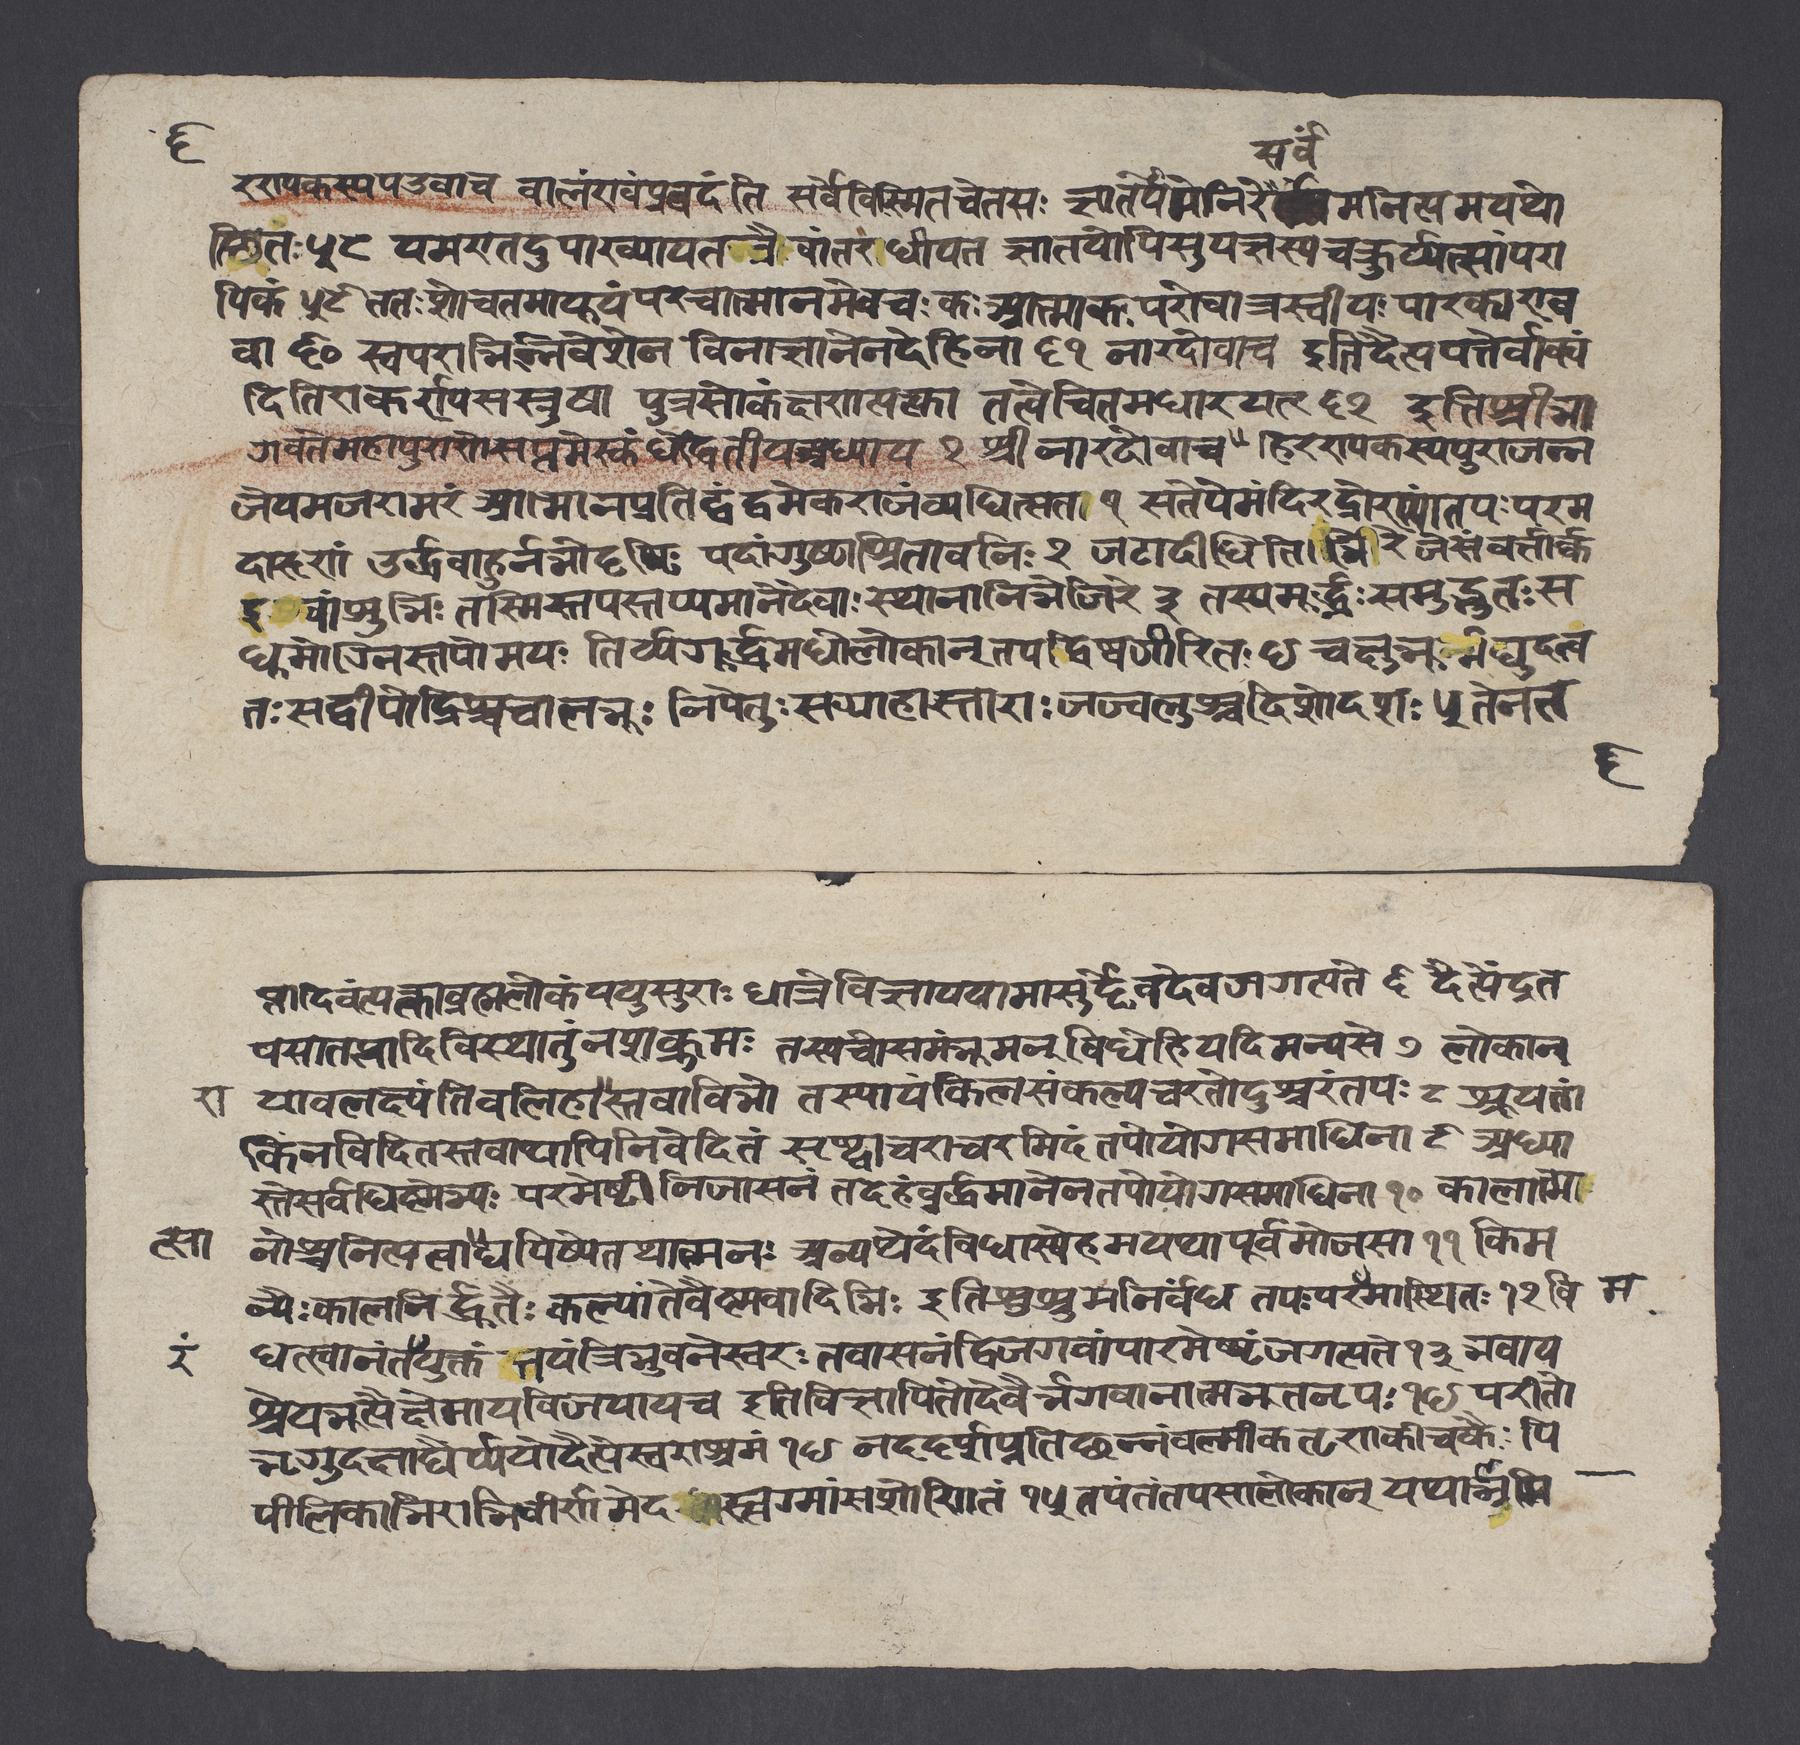 ६
सर्वं
ररापकस्यपउवाच वालंरावंप्रवदंति सर्वेविस्मितचेतसः ज्ञातयोमेनिरे सर्वमनित्यमयथो
त्थितः ५८ यमरातदुपाख्यायतत्रैवांतराधीयत ज्ञातयोपिसुयज्ञस्यचक्रुर्य्यत्सांपरा
यिकं ५९ ततःशोचतमायूयंपरंचात्मानमेवचः कःआत्माकःपरोवात्रस्वीयःपारक्यराव
वा ६० स्वपराभिर्न्निवेशेन विनाज्ञानेनदेहिना ६१ नारदोवाच इतिदैत्यपतेर्वाक्यं
दितिराकर्रायसस्नुषा पुत्रसोकंक्षरात्यक्त्वा तत्वेचितमधारयत् ६२ इतिश्रीभा
गवतेमहापुरारोसप्तमेस्कंधेद्वितीयअध्याय २ श्रीनारदोवाच हिररापकस्यपुराजन्न
जेयमजरामरं आत्मानप्रतिद्वंद्वमेकराजंव्यधित्सत १ सतेपेमंदिरद्रोरायांतपःपरम
दारुरां उर्द्धवाहुर्नभोदृष्टिः पदांगुष्ठाश्रितावनिः २ जटादीधितिभिरेजेसंवर्त्तार्क
इवांशुभिः तस्मिस्तपस्तप्यमानेदेवाःस्थानानिभेजिरे ३ तस्यमूर्द्ध्नःसमुद्भुतःस
धूमोग्निस्तपोमयः तिर्य्यगूर्द्धमधोलोकानतपद्विष्वगीरितः ४ चक्षुभुर्नद्युदन्व
तःसद्वीपोद्रिश्चचालभूः निपेतुःसग्राहास्ताराःजज्वलुश्चदिशोदश ५ तेनत
६
प्तादिवंत्यक्त्वाव्रह्मलोकंययुसुराः धात्रेविज्ञापयामासुर्द्देवदेवजगत्पते ६ दैत्येंद्रत
पसातप्तादिविस्थातुंनशक्रुमः तस्यचोसमंभूमन्विधेहियदिमन्यसे ७ लोकान्
रा यावलक्ष्यंतिवलिहास्तवाविभो तस्यायंकिलसंकल्पचरतोदुश्चरंतपः ८ श्रूयतां
किंनविदितस्तवाथापिनिवेदितं सृष्ट्वाचराचरमिदंतपोयोगसमाधिना ९ अध्या
स्तेसर्वधिष्णेभ्यः परमेष्ठीनिजासनं तदहंवर्द्धमानेनतपोयोगसमाधिना १० कालात्मो
त्सा नोश्चनित्यत्वाधयिष्येतथात्मनः अन्यथेदंविधास्येहमयथापूर्वमोजसा ११ किम
न्यैःकालनिर्द्धूतैः कल्पांतेवैष्णवादिभिः इतिशुश्रुमनिर्वंध तपःपरमास्थितः १२ वि म
रं धत्स्वानंतयुक्तं स्वयंत्रिभुवनेस्वरः तवासनंद्विजगवांपारमेष्ठ्यंजगत्पते १३ भवाय
श्रेयभूत्यैक्षेमायविजयायच इतिविज्ञापितोदेवैर्भगवानात्मभूतनृपः १४ परीतो
भृगुदक्षाद्यैर्य्ययोदैत्येस्वराश्रमं १४ नददर्शप्रतिछन्नंवल्मीकतृराकीचकैः पि
पीलिकाभिराचिवीर्रामेदत्वस्मांसशोरिातं १५ तपंतंतपसालोकान् यथार्भ्रपि